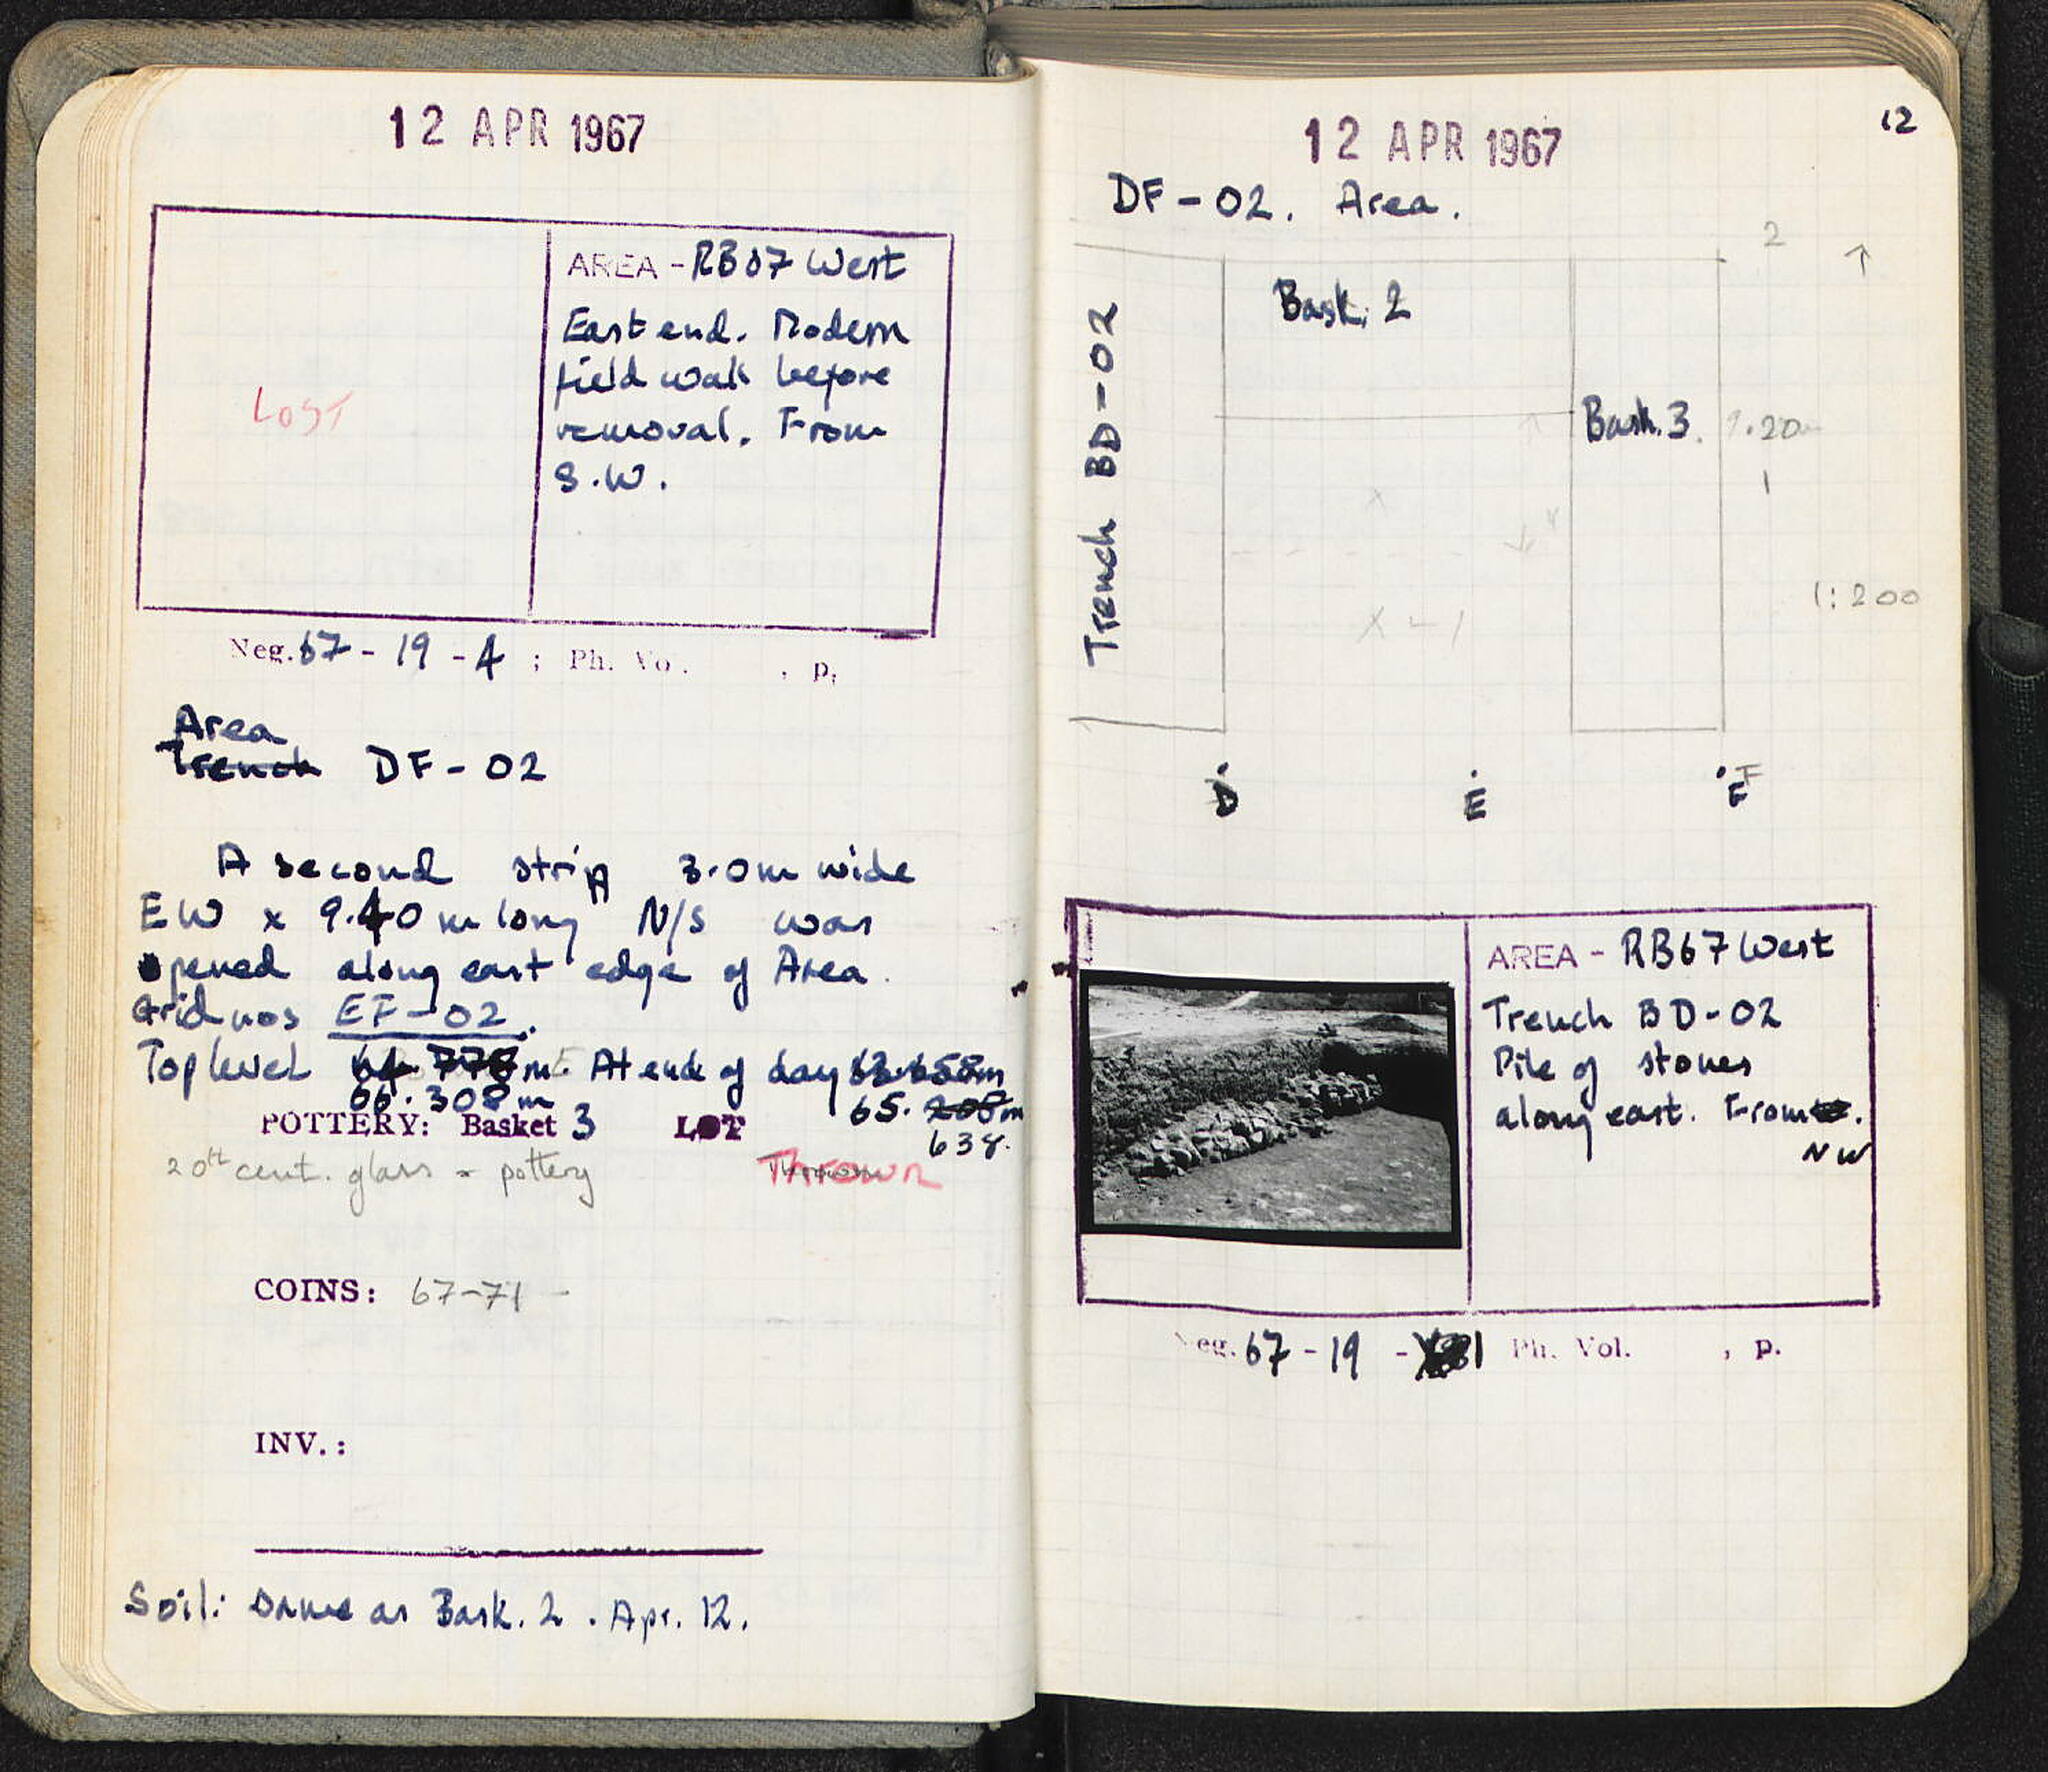 12 APR 1967
LOST
AREA - RB67 West
East end. Modern
field wall before
removal. From
S.W.
Neg. 67 - 19 - 4 ; Ph. Vo . , p.
Area
Trench DF - 02
A second strip 3.0 m wide
EW x 9.40 m long N/S was
opened along east edge of Area.
Grid nos EF - 02.
Top level m. At end of day
66.308 m 65. 208 m
POTTERY: Basket 3 LOT 638.
20th cent. glass + pottery Thrown
COINS: 67-71 -
INV. :
Soil: Same as Bask. 2 . Apr. 12.
12
12 APR 1967
DF - 02. Area.
2
Bask. 2
Trench BD - 02
Bask. 3. .20
1
1:200
X - 1
D E F
AREA - RB67 West
Trench BD - 02
Pile of stones
along east. From
NW
Neg. 67 - 19 - 1 Ph. Vol. , p.